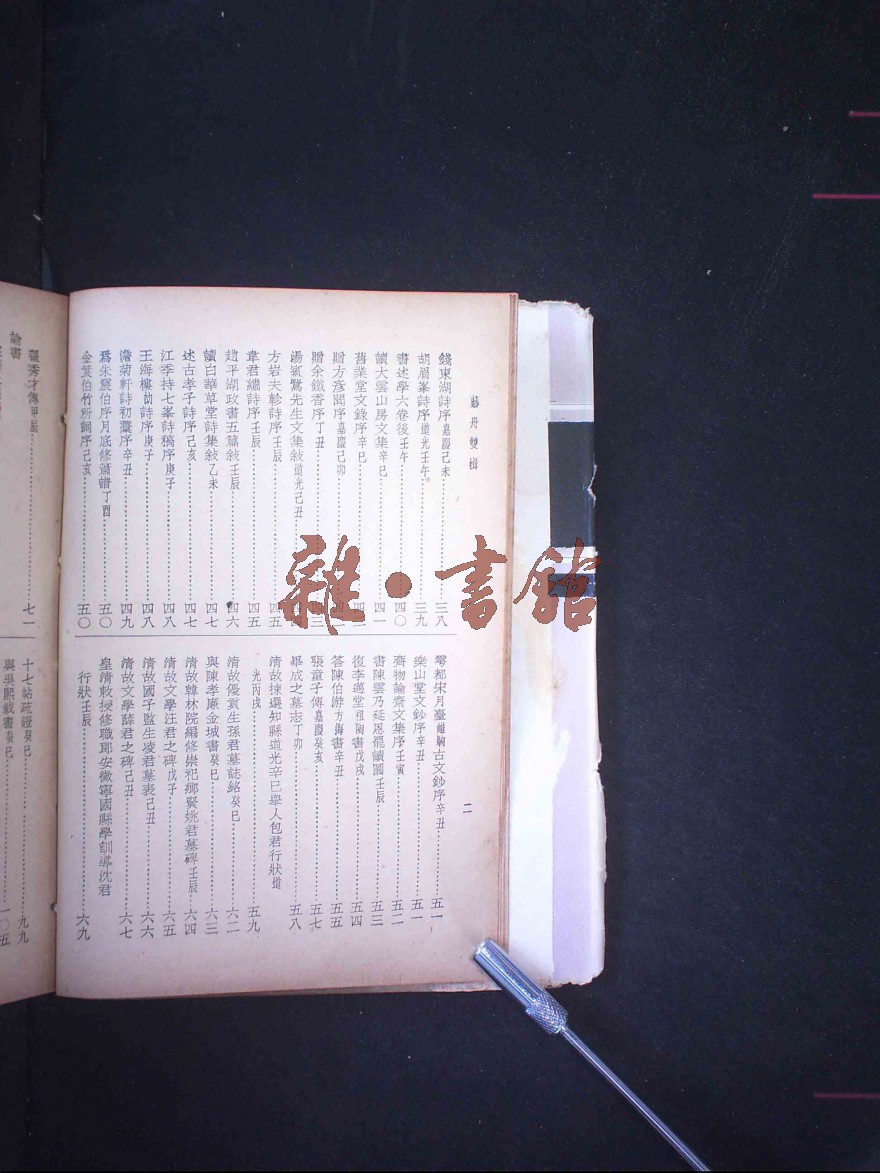 藝舟雙楫
二
錢東湖詩序嘉慶己未……三八
胡眉峯詩序道光壬午……三九
書述學六卷後壬午……四〇
讀大雲山房文集辛巳……四一
舊業堂文錄序辛巳
贈方彥聞序嘉慶己卯
贈余鐵香序丁丑
湯賓鷺先生文集敍道光己丑
方岩夫軫詩序壬辰……四五
韋君繡詩序壬辰……四五
趙平湖政書五篇敍壬辰……四六
讀白華草堂詩集敍乙未……四七
述古孝子詩序己亥……四七
江季持七峯詩稿序庚子……四八
王海樓劬詩序庚子……四八
澹菊軒詩初藁序辛丑……四九
爲朱震伯序月底修簫譜丁酉……五〇
金筤伯竹所詞序己亥……五〇
雩都宋月臺維駒古文鈔序辛丑……五一
樂山堂文鈔序辛丑……五一
齊物論齋文集序壬寅……五二
書陳雲乃延恩罷讀圖壬辰……五三
復李邁堂祖陶書戊戌……五四
答陳伯游方海書辛丑……五五
張童子傳嘉慶癸亥……五七
畢成之墓志丁卯……五八
清故揀選知縣道光辛巳舉人包君行狀道
光丙戌……五九
清故優貢生孫君墓誌銘癸巳……六二
與陳孝廉金城書癸巳……六三
清故翰林院編修崇祀鄉賢姚君墓碑壬辰……六四
清故文學汪君之碑戊子……六五
清故國子監生凌君墓表己丑……六六
清故文學薛君之碑己丑……六七
皇清敕授修職郎安徽寧國縣學訓導沈君
行狀壬辰……六九
秀才傳甲辰……七一
論書
十七帖疏證癸巳……九九
與吳熙載書癸巳……一〇五
雜·書館